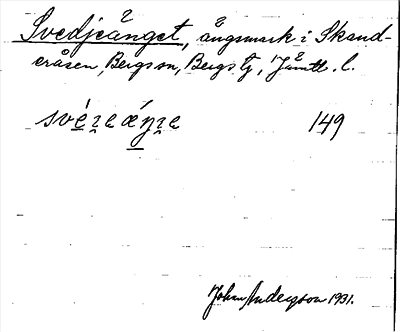 Svedjeänget, ängsmark i Skand-
eråsen, Bergs sn, Bergs tg, Jämtl. l.
149
Johan Anderson 1931.